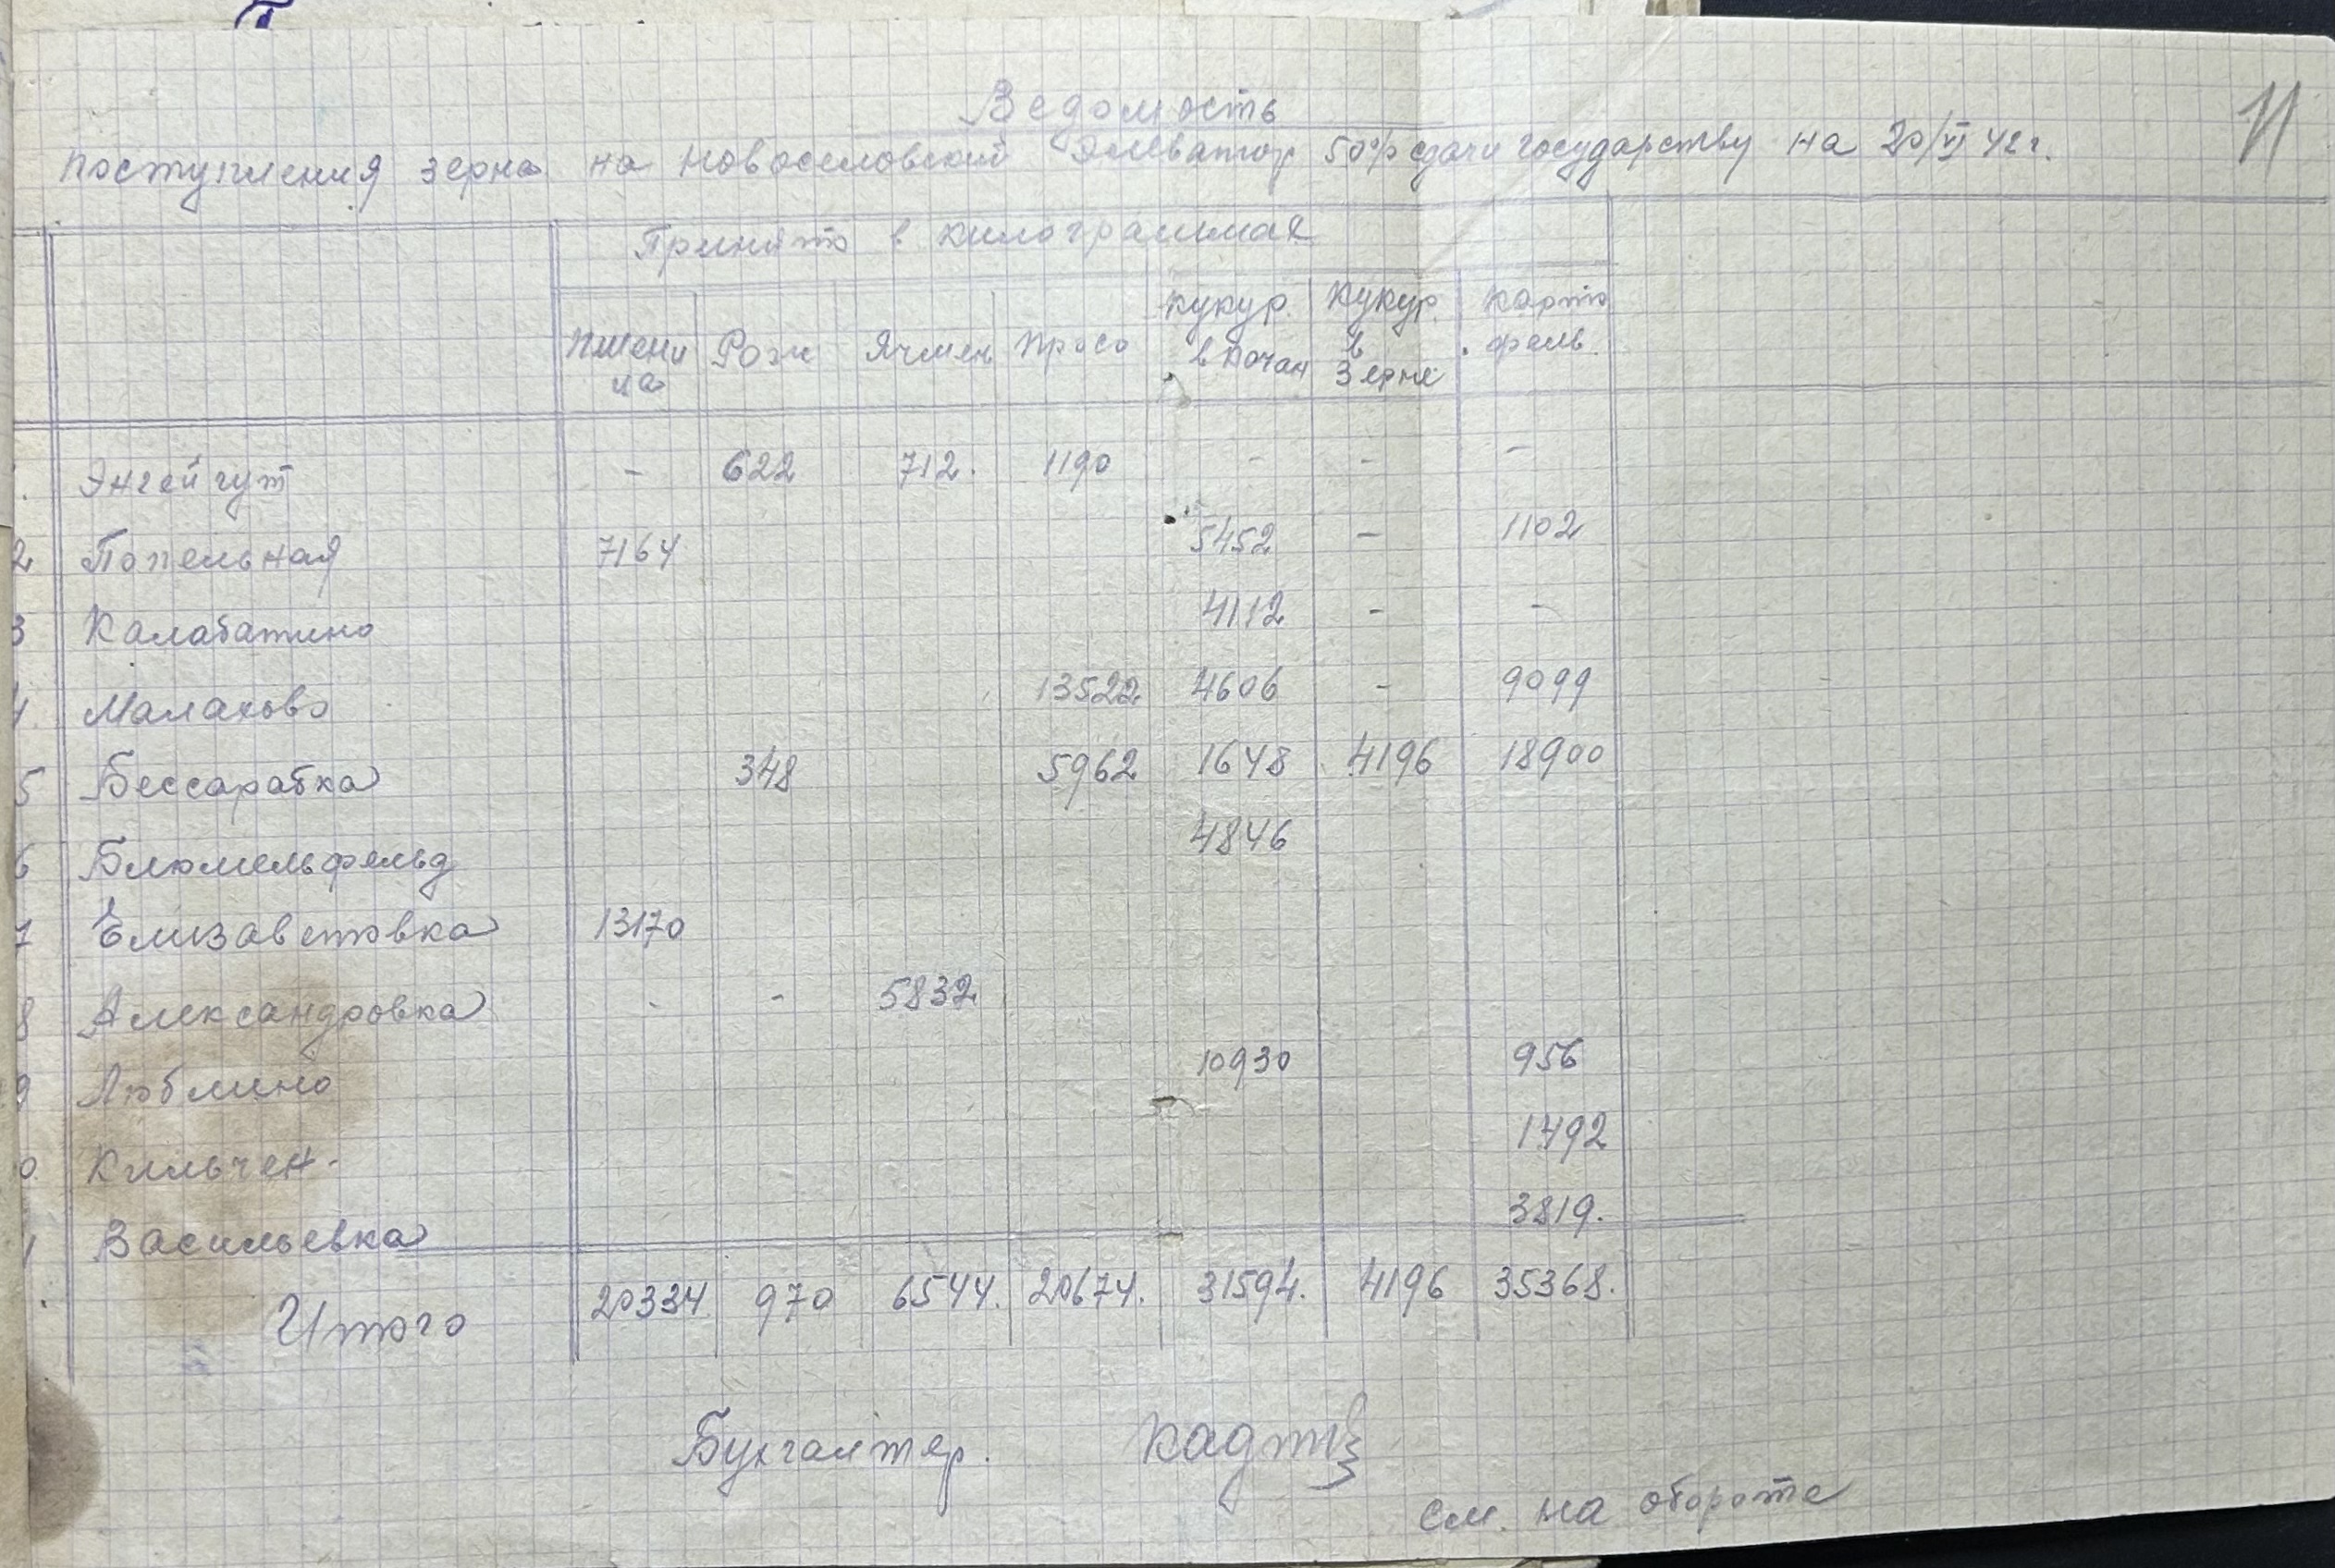 11
Ведомость
поступления зерна на Новоселовский Элеватор 50% сдачи государству на 20/VI 42 г.
Принято в килограммах
Пшени ца Рож Ячмень Просо Кукур. в Кочан Кукур. в Зерне Карто фель.
Энгейгут - 622 712. 1190 - - -
2 Попельная 7164 5452 - 1102
3 Калабатино 4112 - -
4. Малахово 13522 4606 - 9099
5 Бессарабка 348 5962 1648 4196 18900
6 Блюмельфельд 4846
7 Елизаветовка 13170
8 Александровка - - 5832
9 Люблино 10930 956
0. Кильчен. 1492
1 Васильевка 3819.
Итого 20334 970 6544. 20674. 31594. 4196 35368.
Бухгалтер.
см. на обороте